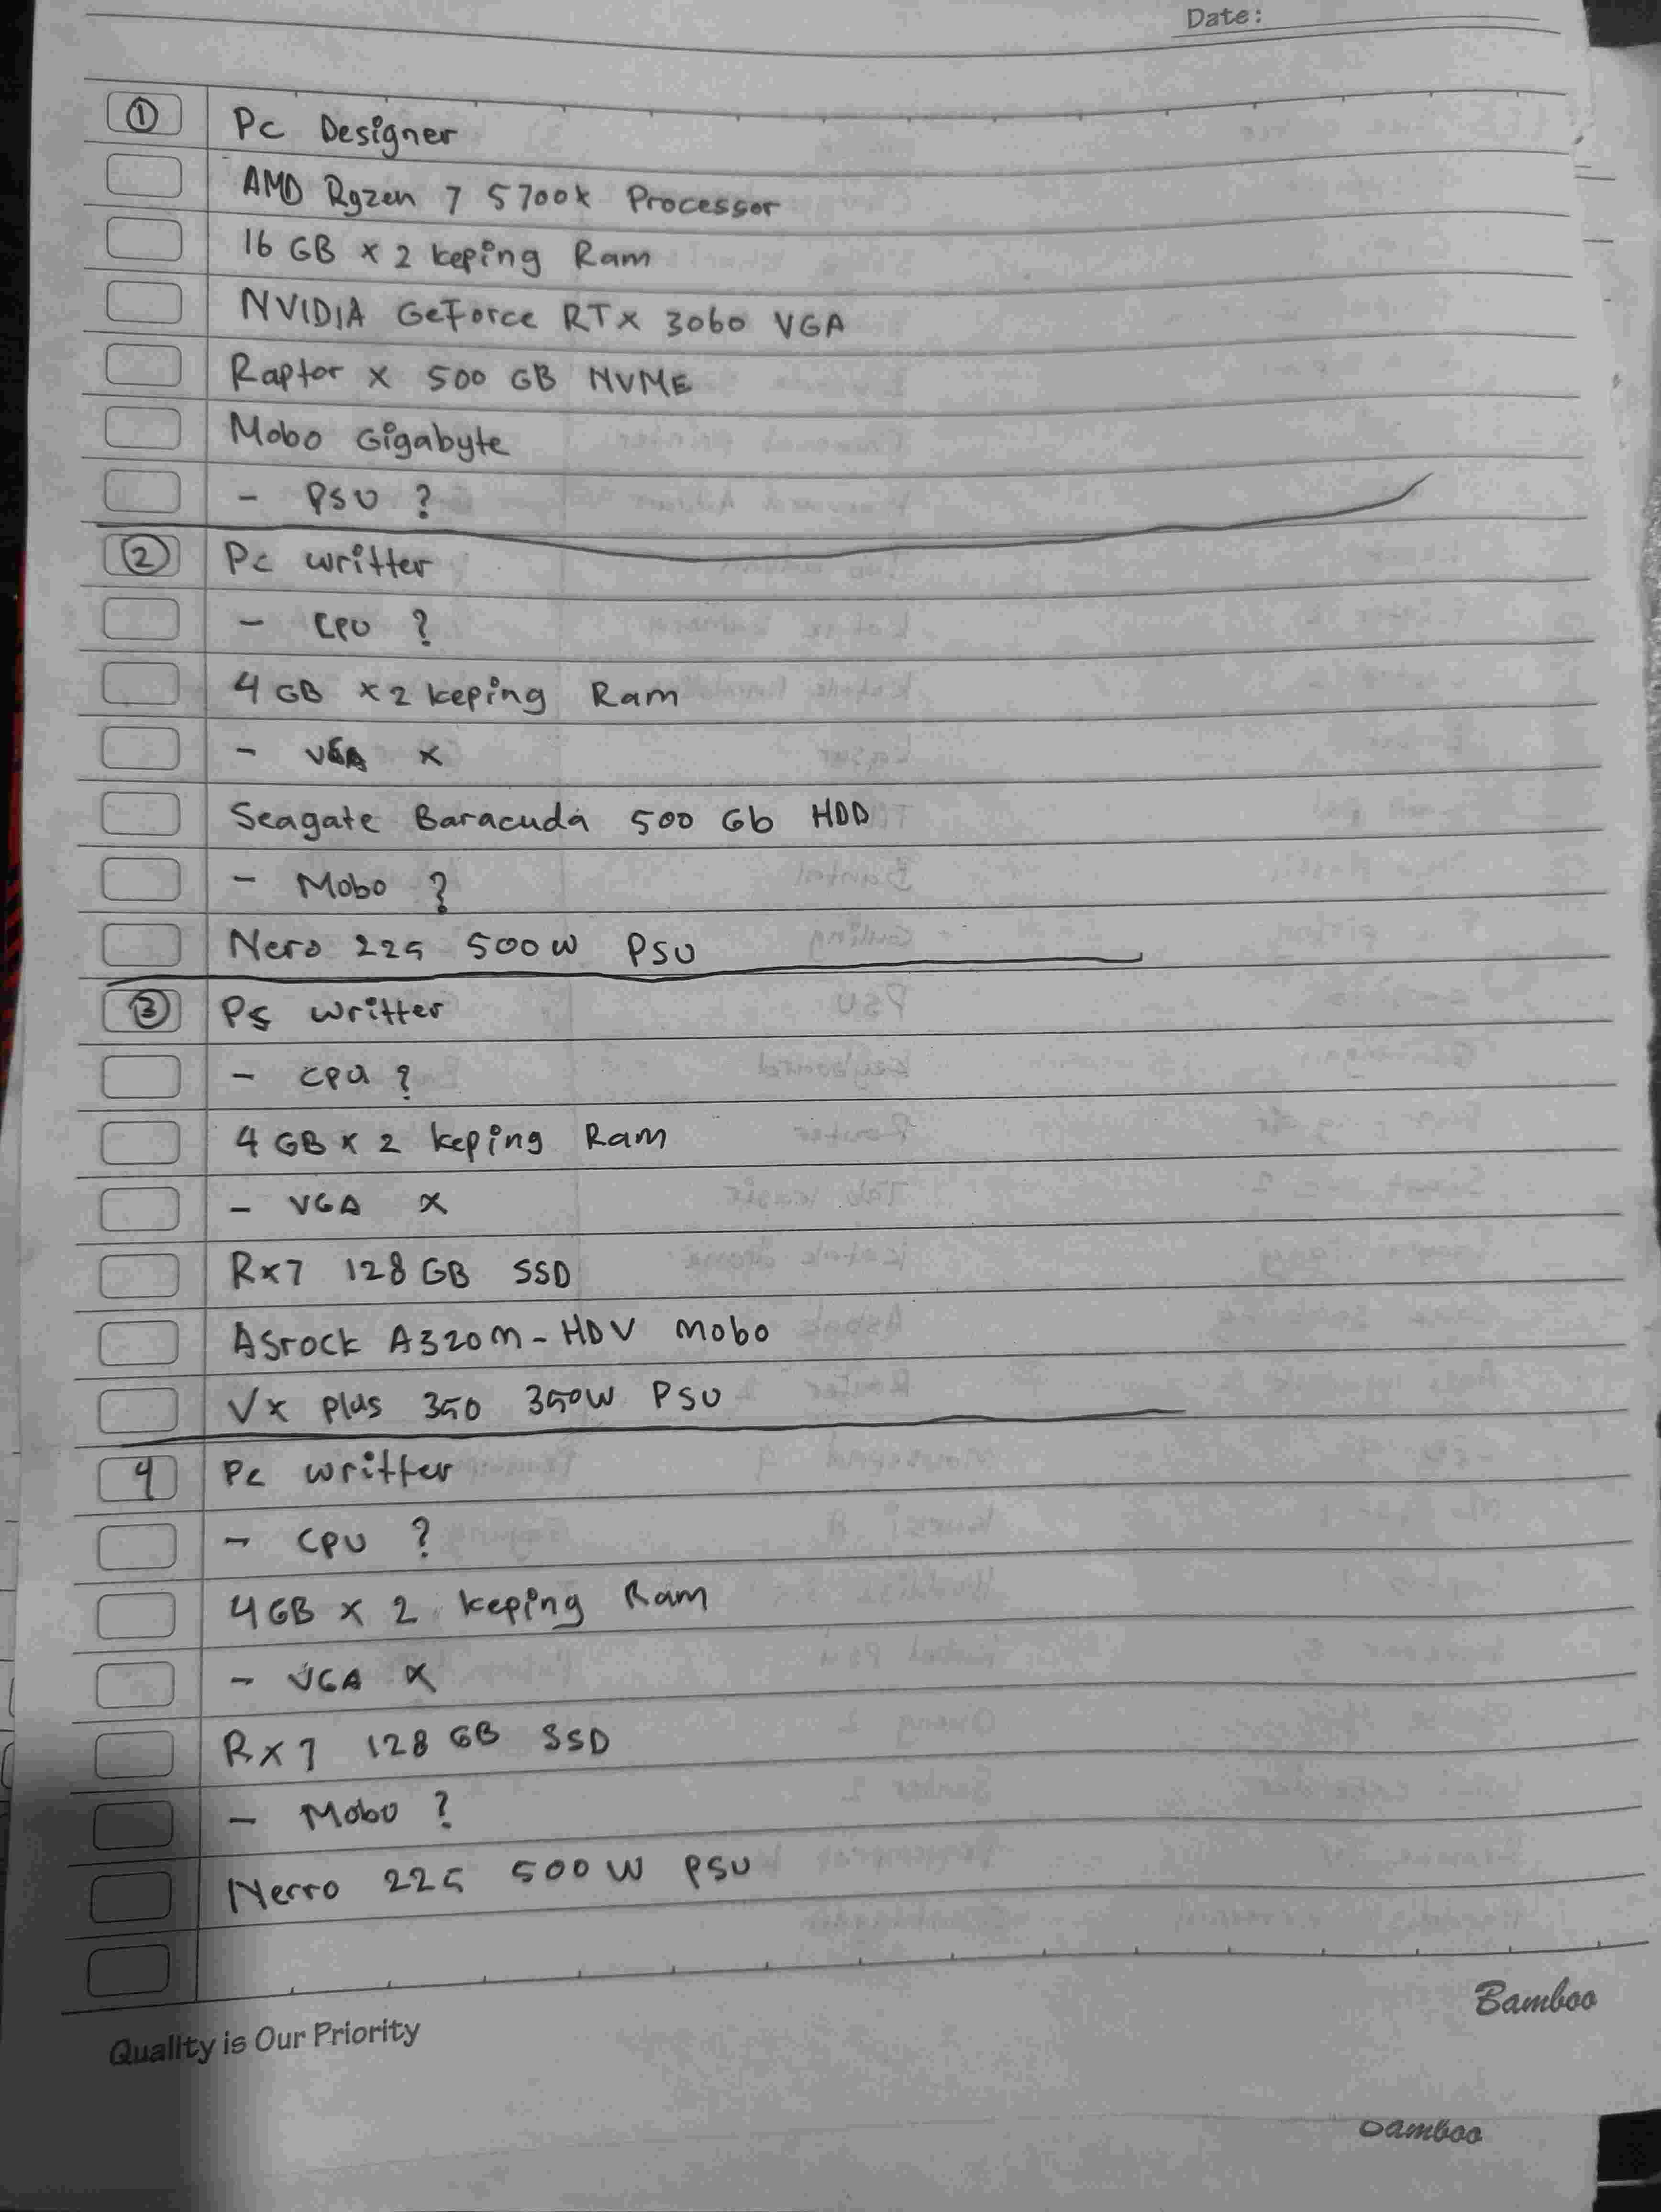 Date:
1 Pc Designer
AMD Ryzen 7 5700x Processor
16 GB x 2 keping Ram
NVIDIA GeForce RTX 3060 VGA
Raptor x 500 GB NVME
Mobo Gigabyte
- PSU ?
2 Pc writter
- CPU ?
4 GB x 2 keping Ram
- VGA x
Seagate Baracuda 500 Gb HDD
- Mobo ?
Nero 225 500 W PSU
3 Pc writter
- CPU ?
4 GB x 2 keping Ram
- VGA x
Rx7 128 GB SSD
Asrock A320M-HDV Mobo
Vx plus 350 350W PSU
4 Pc writter
- CPU ?
4 GB x 2 keping Ram
- VGA x
Rx7 128 GB SSD
- Mobo ?
Nerro 225 500 W PSU
Bamboo
Quality is Our Priority
Bamboo